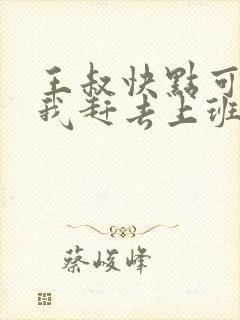 王叔快點可
我赶去上班
蔡峻峰